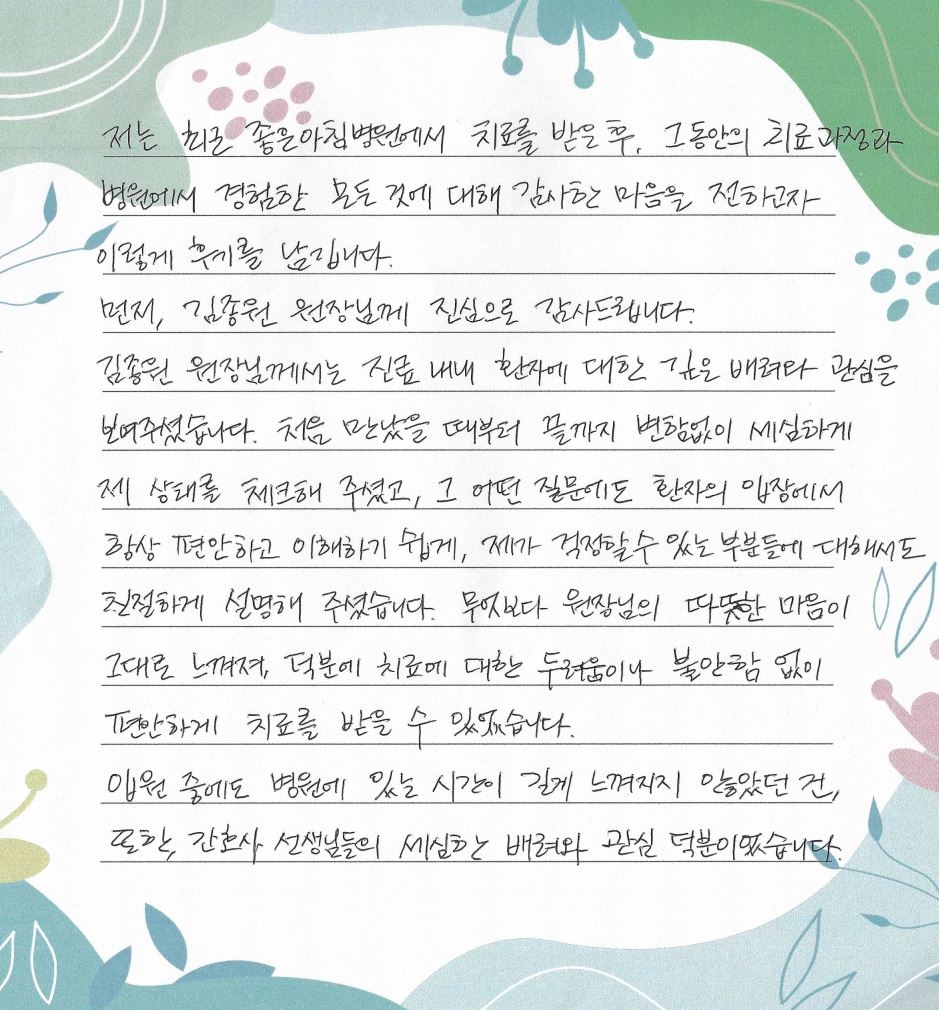 저는 최근 좋은아침병원에서 치료를 받은 후, 그동안의 치료과정과
병원에서 경험한 모든 것에 대해 감사한 마음을 전하고자
이렇게 후기를 남깁니다.
먼저, 김종원 원장님께 진심으로 감사드립니다.
김종원 원장님께서는 진료 내내 환자에 대한 깊은 배려와 관심을
보여주셨습니다. 처음 만났을 때부터 끝까지 변함없이 세심하게
제 상태를 체크해 주셨고, 그 어떤 질문에도 환자의 입장에서
항상 편안하고 이해하기 쉽게, 제가 걱정할 수 있는 부분들에 대해서도
친절하게 설명해 주셨습니다. 무엇보다 원장님의 따뜻한 마음이
그대로 느껴져, 덕분에 치료에 대한 두려움이나 불안함 없이
편안하게 치료를 받을 수 있었습니다.
입원 중에도 병원에 있는 시간이 길게 느껴지지 않았던 건,
또한, 간호사 선생님들의 세심한 배려와 관심 덕분이었습니다.